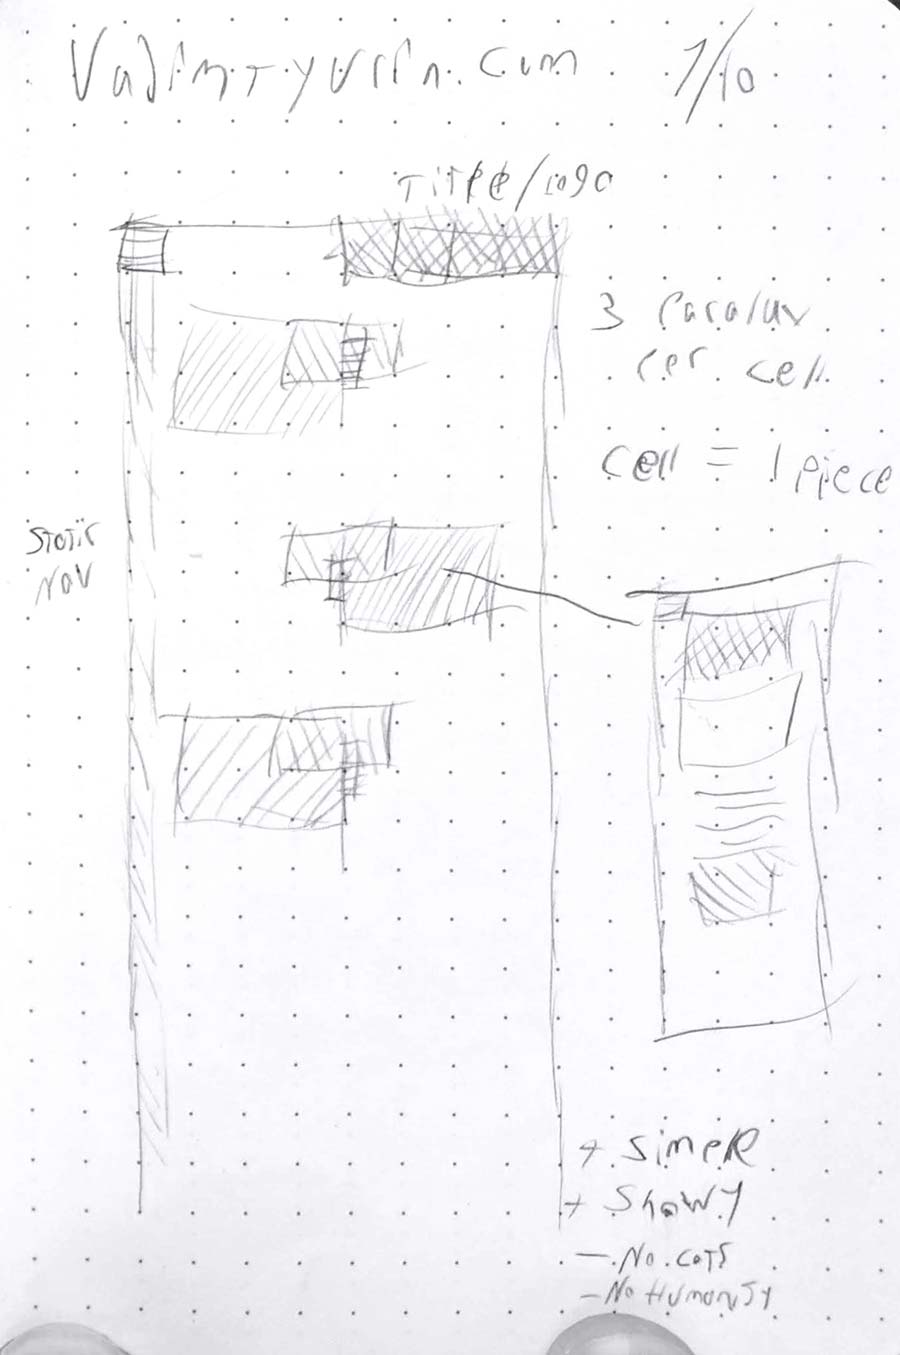 Vadimtyurin.com 1/10
Title/logo
3 Paralax
Per cell
cell = 1 piece
Static
Nav
+ Simple
+ Showy
- No cats
- No Humanity